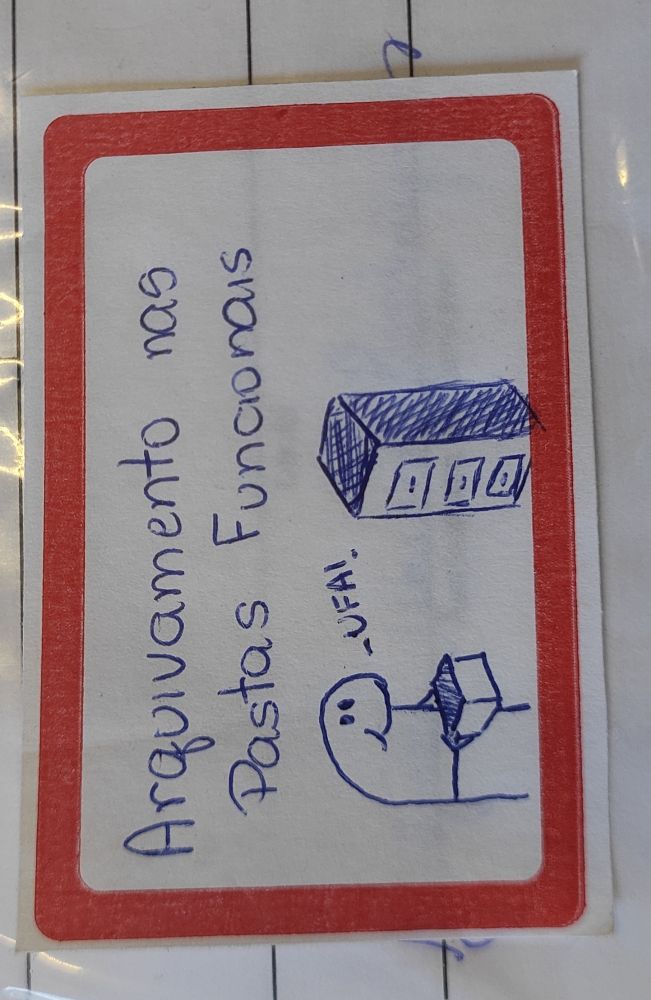 Arquivamento nas
Pastas Funcionais
-UFA!.